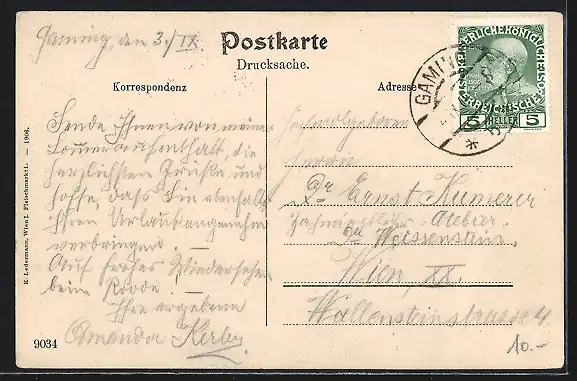 Gaming, den 3./IX.
Postkarte
Drucksache.
Korrespondenz
Adresse
Sende Ihnen von meinem
Sommeraufenthalt, die
herzlichsten Grüße und
hoffe, dass Sie ebenfalls
Ihren Urlaub angenehm
verbringen. —
Auf frohes Wiedersehen
beim
Ihre ergebene
Amanda Kerby
Hochwolgeboren
Herrn
Dr Ernst Kumerer
Atelier
Dr Weissenstein
Wien, XX.
Wallensteinstrasse 4.
10.-
GAMING
KAISERLICHE KÖNIGLICHE
ÖSTERREICHISCHE
5 HELLER 5
K. Ledermann, Wien I. Fleischmarkt 1. — 1906.
9034